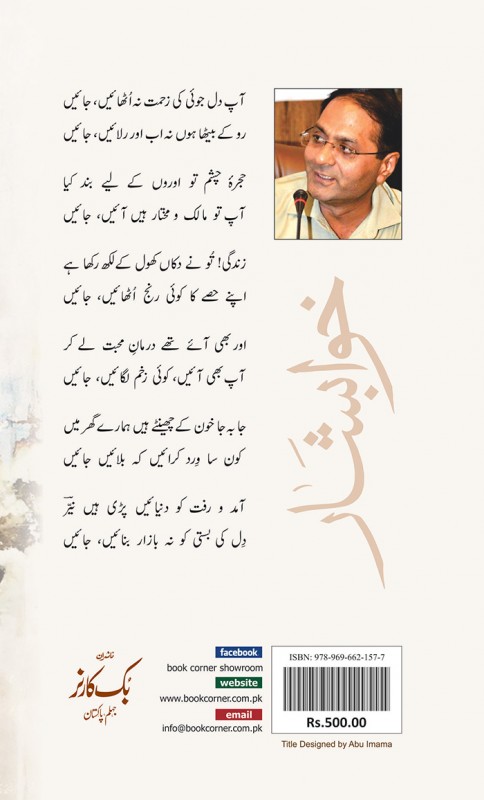 آپ دل جوئی کی زحمت نہ اُٹھائیں، جائیں
رو کے بیٹھا ہوں نہ اب اور رلائیں، جائیں
حجرۂ چشم تو اوروں کے لیے بند کیا
آپ تو مالک و مختار ہیں آئیں، جائیں
زندگی! تُو نے دکاں کھول کے لکھ رکھا ہے
اپنے حصے کا کوئی رنج اُٹھائیں، جائیں
اور بھی آئے تھے درمانِ محبت لے کر
آپ بھی آئیں، کوئی زخم لگائیں، جائیں
جا بہ جا خون کے چھینٹے ہیں ہمارے گھر میں
کون سا وِرد کرائیں کہ بلائیں جائیں
آمد و رفت کو دنیائیں پڑی ہیں نیّر
دِل کی بستی کو نہ بازار بنائیں، جائیں
خوابشار
بک کارنر
جہلم، پاکستان
facebook
book corner showroom
website
www.bookcorner.com.pk
email
info@bookcorner.com.pk
ISBN: 978-969-662-157-7
Rs.500.00
Title Designed by Abu Imama